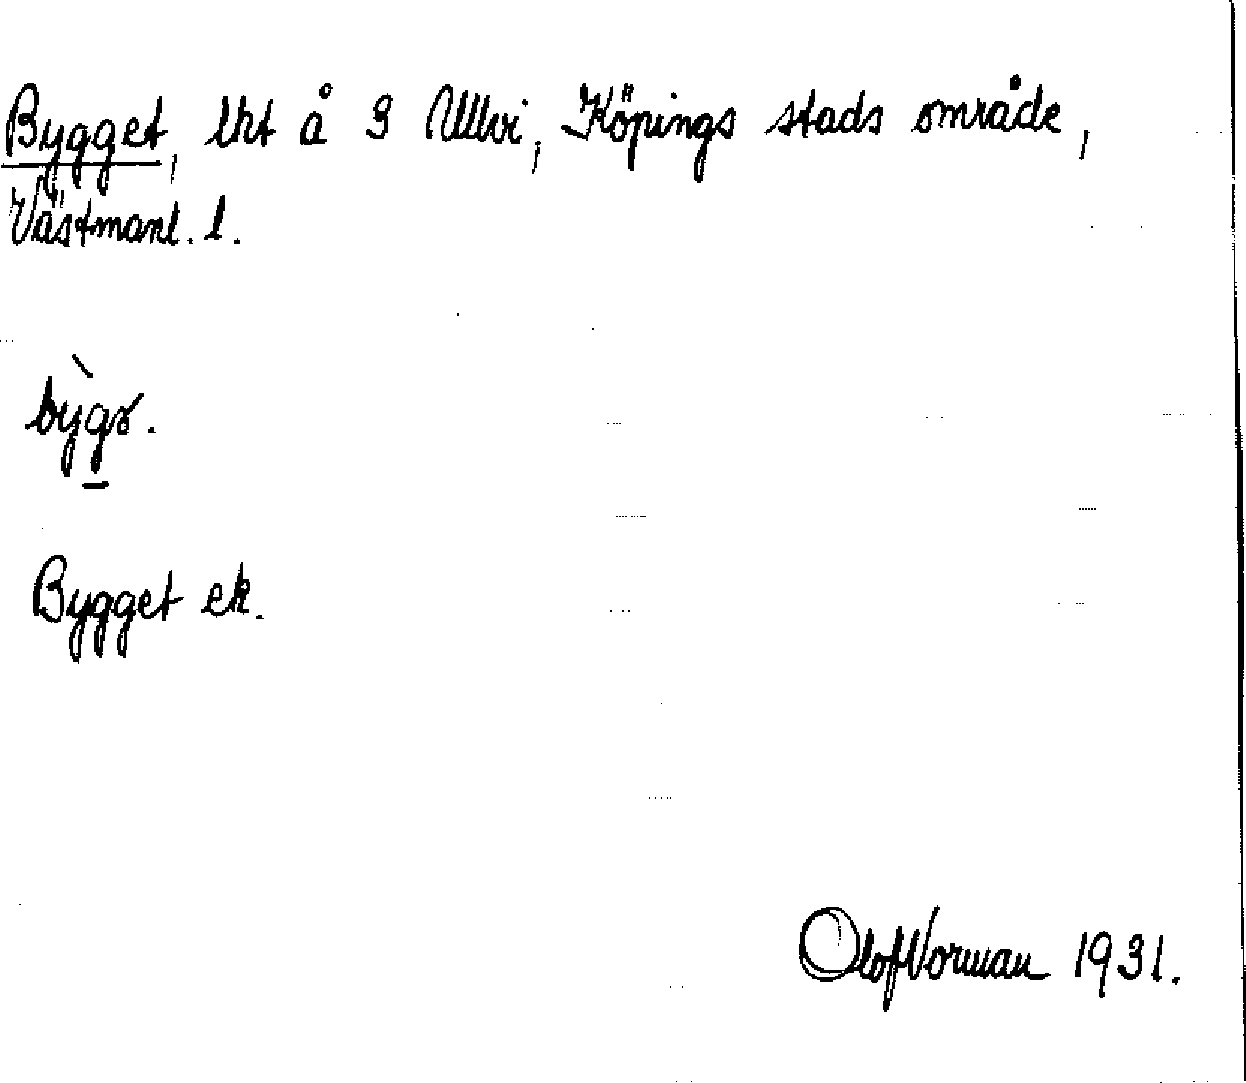 Bygget, lht å S Ullvi, Köpings stads område,
Västmanl. l.
bỳgə.
Bygget ek.
Olof Norman 1931.